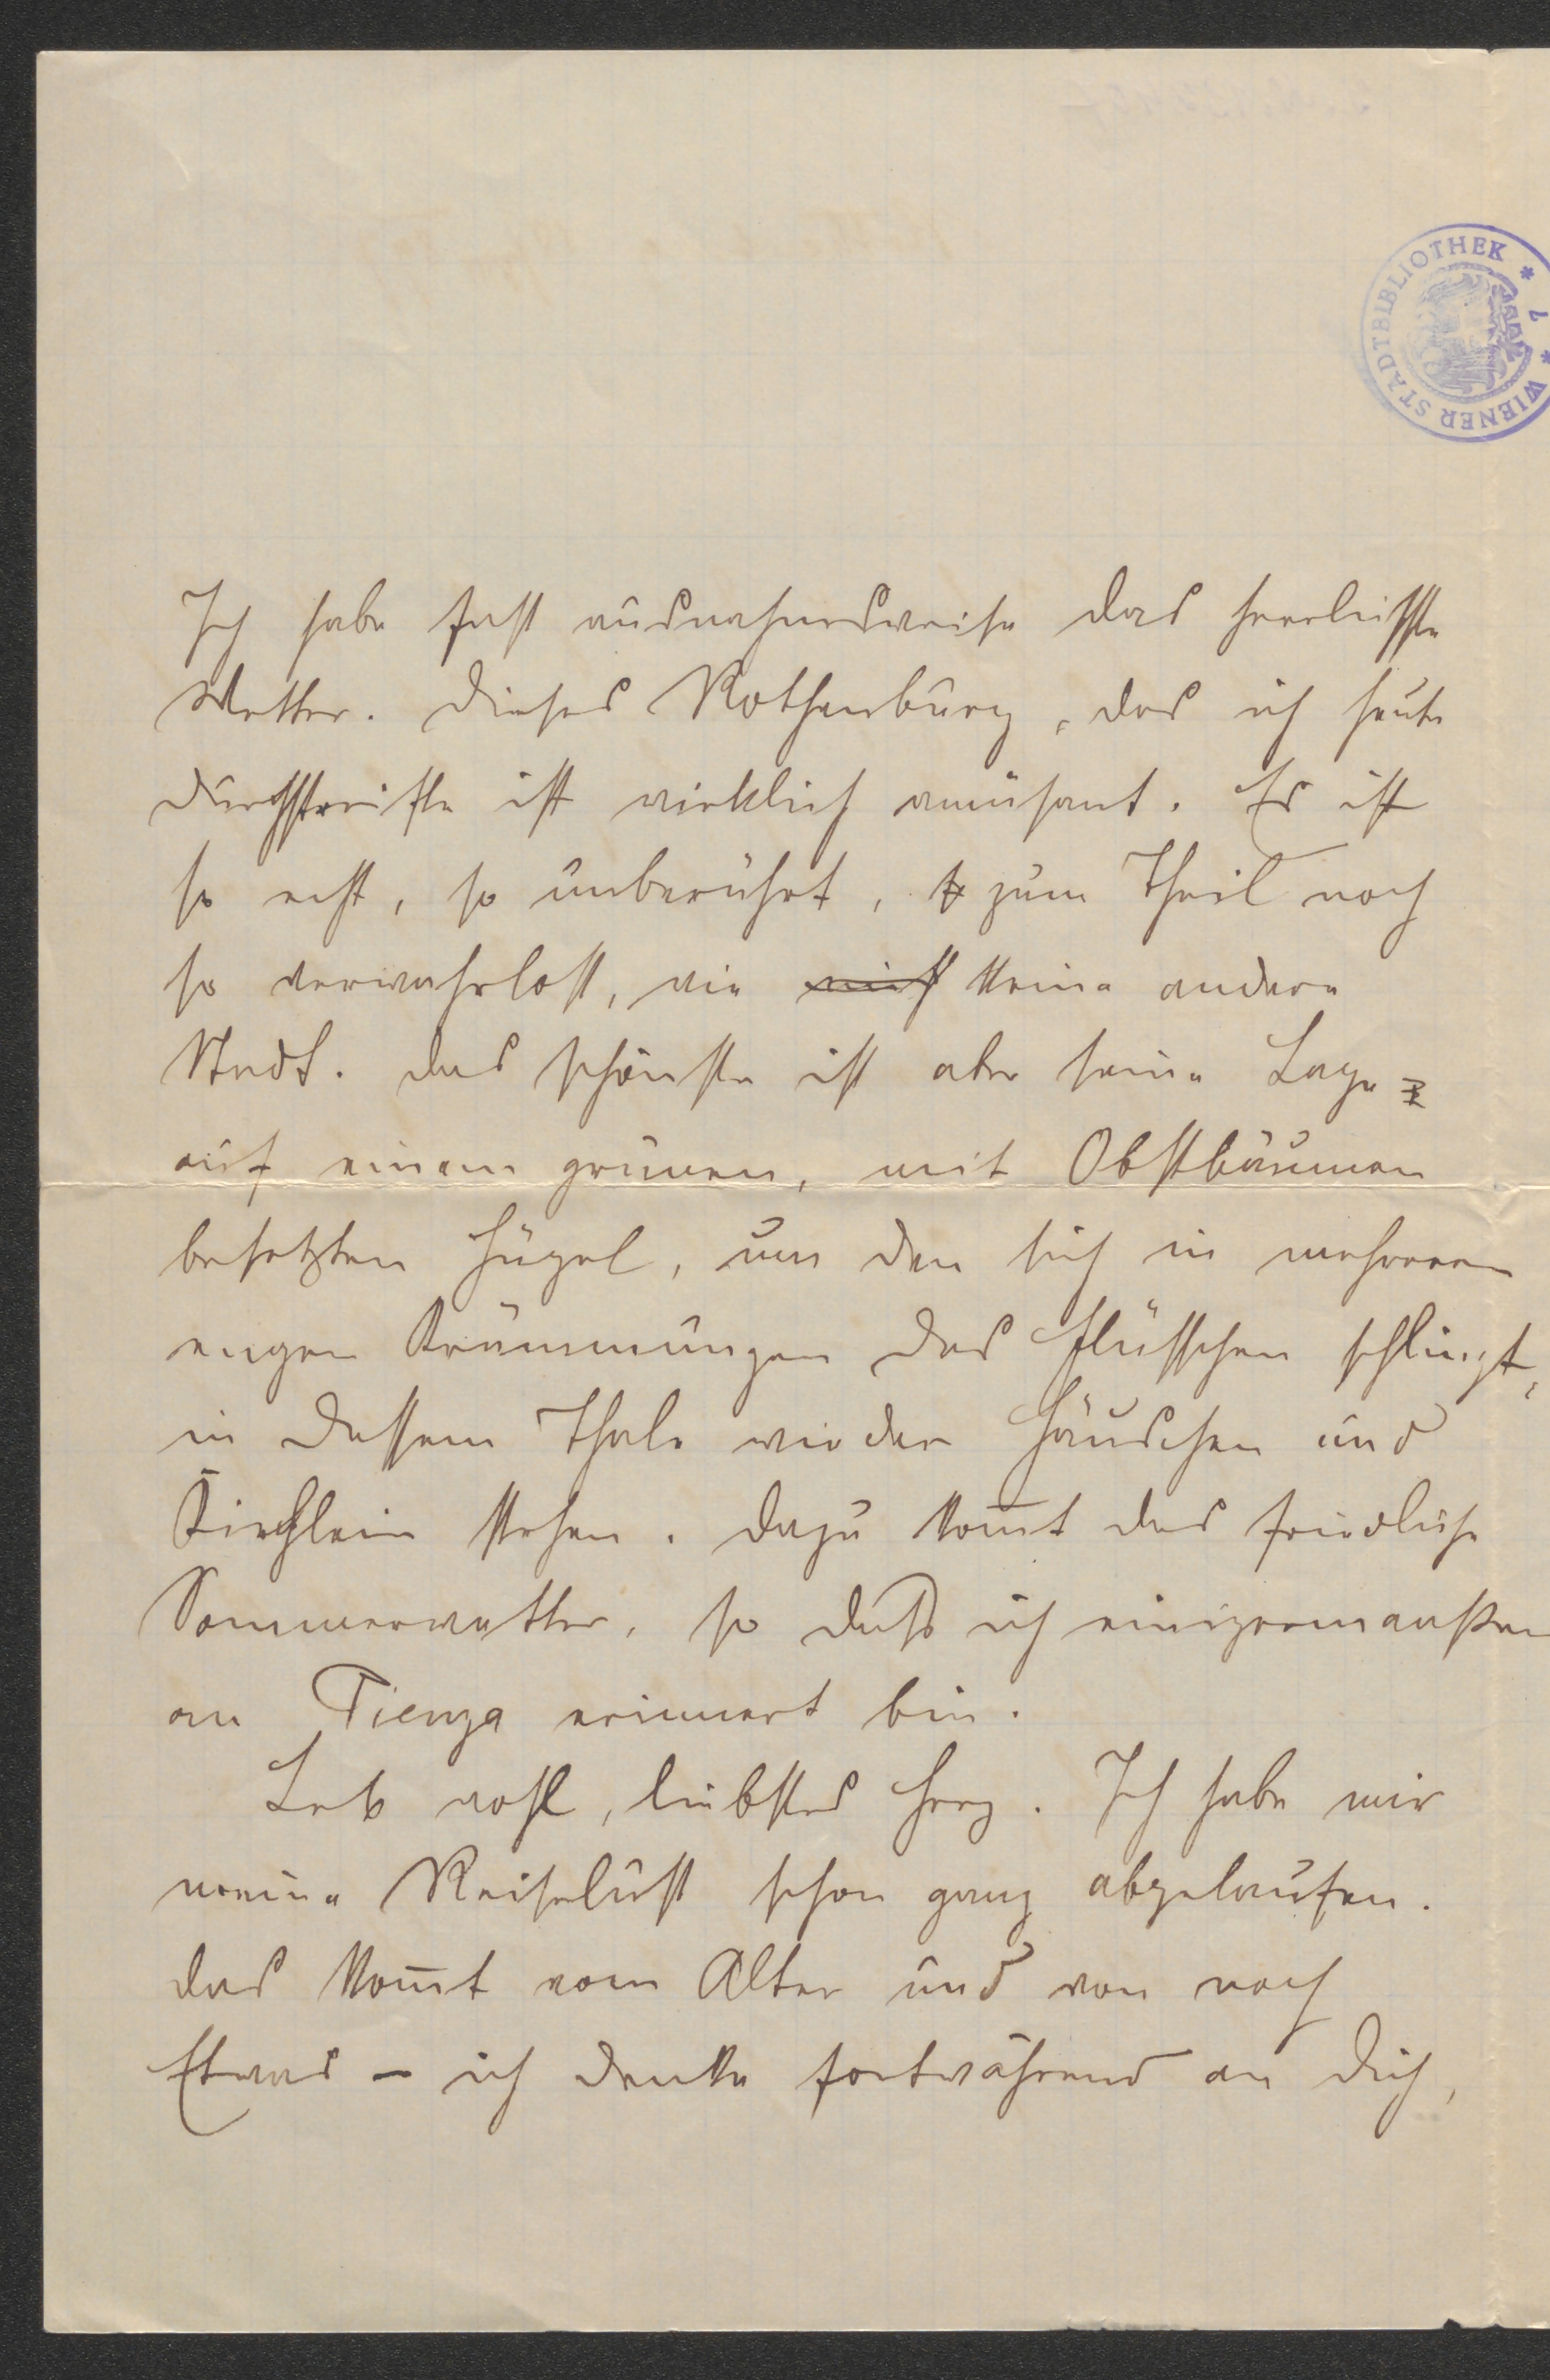 WIENER STADTBIBLIOTHEK * 1 *
Ich habe fast ausnahmsweise das herrlichste
Wetter. Dieses Rothenburg, das ich heute
durchstreifte ist wirklich amüsant. Es ist
so echt, so unberührt, zum Theil noch
so verwahrlost, wie nicht keine andere
Stadt. Das schönste ist aber seine Lage
auf einem grünen, mit Obstbäumen
besetzten Hügel, um den sich in mehreren
engen Krümmungen das Flüsschen schlingt,
in dessem Thale wieder Häuschen und
Kirchlein stehen. Dazu kom̄t das friedliche
Sommerwetter, so dass ich einigermaaßen
an Pienza erinnert bin.
Leb wohl, liebstes Herz. Ich habe mir
meine Reiselust schon ganz abgelaufen.
Das kom̄t vom Alter und von noch
Etwas – ich denke fortwährend an Dich,